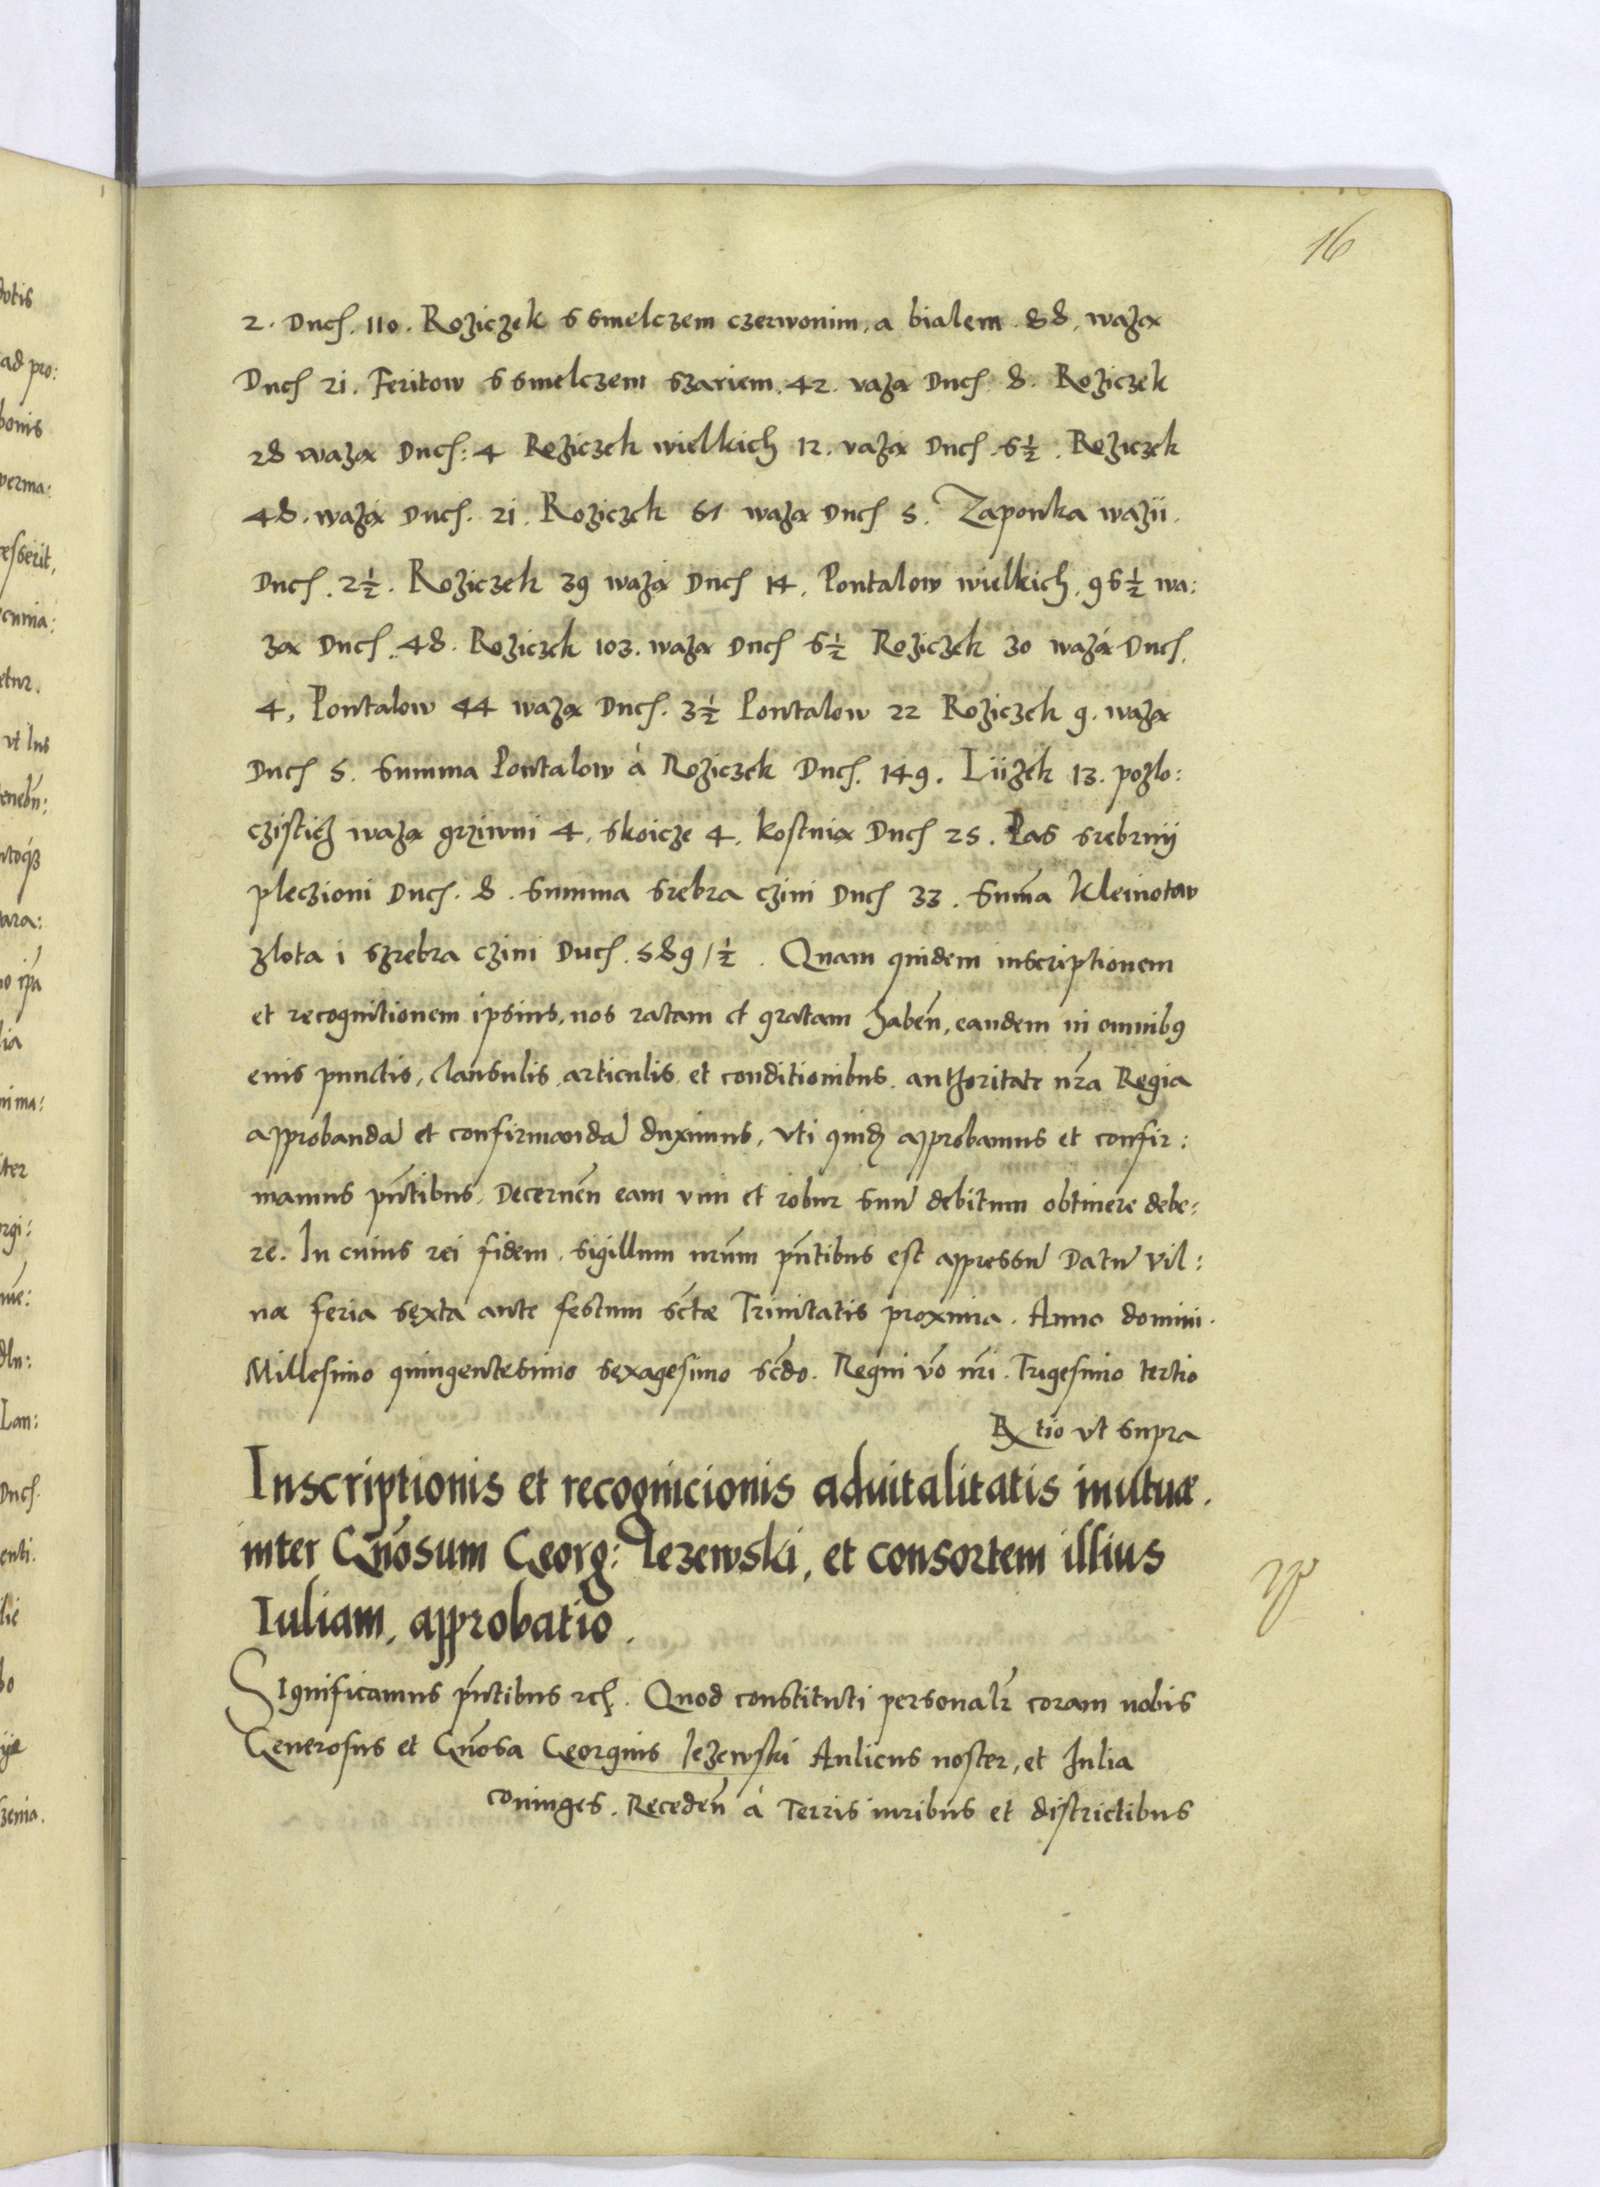 16
2. Ducs. 110. Roziczek s smelczem czerwonim, a bialem. 88, wazą
Ducs 21. Feritow s smelczem szariem. 42. vazą Ducs. 8. Roziczek
28 wazą Ducs: 4 Roziczek wielkich 12. vazą Ducs. 6½. Roziczek
48. wazą Ducs. 21. Roziczek 61 wazą Ducs 5. Zaponka wazii.
Ducs. 2½. Roziczek 39 wazą Ducs 14. Pontalow wielkich. 96½ wa:
zą Ducs. 48. Roziczek 103. wazą Ducs 6½ Roziczek 30 wazą Ducs.
4, Pontalow 44 wazą Ducs. 3½ Pontalow 22 Roziczek 9. wazą
Ducs 5. Summa Pontalow à Roziczek Ducs. 149. Liizek 13. pozlo:
czistich wazą grziwni 4, skoicze 4, kostuią Ducs 25. Pas srebrnij
pleczioni Ducs. 8. Summa srebra czini Ducs 33. Sum̃a Kleinotow
zlota i szrebra czini Ducs. 589/½. Quam quidem inscriptionem
et recognitionem ipsius, nos ratam et gratam habeñ, eandem in omnibꝰ
eius punctis, clausulis, articulis, et conditionibus. authoritate nr̃a Regia
approbandã et confirmandã duximus, vti quidẽ approbamus et confir:
mamus pñtibus. Decerneñ eam vim et robur suũ debitum obtinere debe:
re. In cuius rei fidem, sigillum nrũm pñtibus est appressũ Datũ Vil:
næ feria sexta ante festum sc̃tæ Trinitatis proxima. Anno domini.
Millesimo quingentesimo sexagesimo sc̃do. Regni vo̅ nr̃i. Trigesimo tertio
Rtio vt supra
Inscriptionis et recognicionis aduitalitatis mutuæ.
inter Gño̅sum Georg: Iezewski, et consortem illius
Iuliam, approbatio.
Significamus pñtibus etc̃. Quod constituti personalr̃ coram nobis
Generosus et Gño̅sa Georgius Iezewski Aulicus noster, et Iulia
coniuges. Recedeñ à Terris iuribus et districtibus